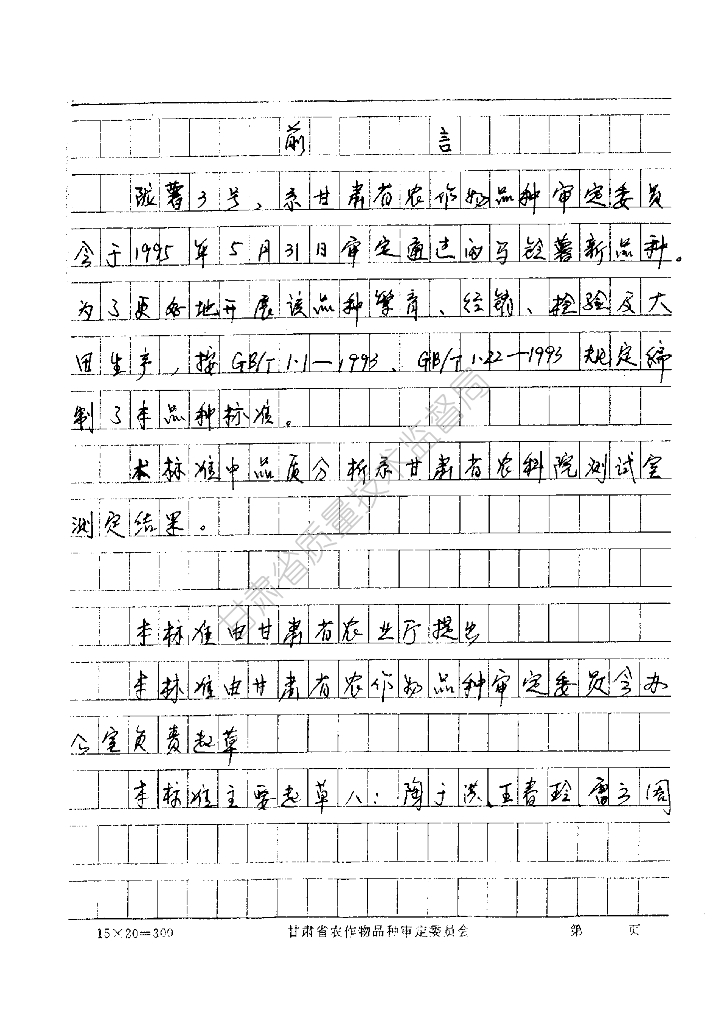 前言
陇薯3号、系甘肃省农作物品种审定委员
会于1995年5月31日审定通过的马铃薯新品种。
为了更好地开展该品种繁育、经销、检验及大
田生产，按GB/T 1·1—1993、GB/T 1·22—1993 规定编
制了本品种标准。
本标准中品质分析系甘肃省农科院测试室
测定结果。
本标准由甘肃省农业厅提出
本标准由甘肃省农作物品种审定委员会办
公室负责起草
本标准主要起草人：陶于洪、王春玲、
15×20=300 甘肃省农作物品种审定委员会 第 页
甘肃省质量技术监督局